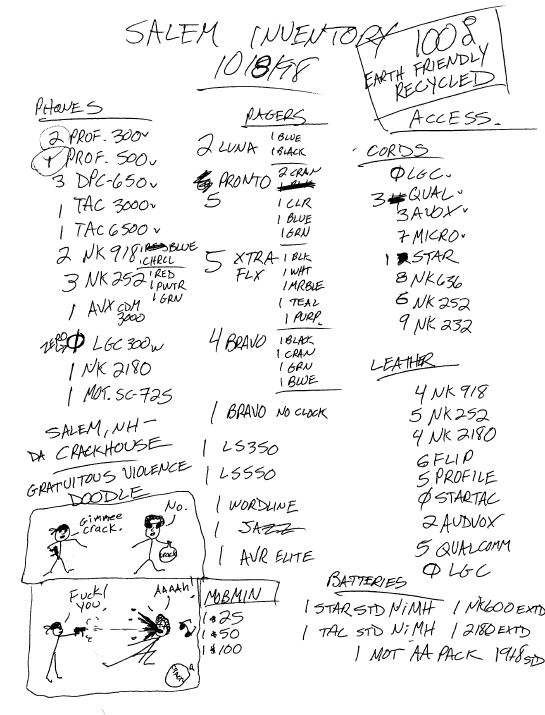 SALEM INVENTORY
10/8/98
100%
EARTH FRIENDLY
RECYCLED
PHONES
2 PROF. 300
4 PROF. 500
3 DPC-650
1 TAC 3000
1 TAC 6500
2 NK 918 1 BLUE
1 CHRCL
3 NK 252 1 RED
1 PWTR
1 GRN
1 AVX CDM
3000
ZERO 0 LGC 300W
1 NK 2180
1 MOT. SC-725
SALEM, NH-
DA CRACKHOUSE
GRATUITOUS VIOLENCE
DOODLE
Gimmee
crack.
No.
CRACK
Fuck
you.
AAAAh!
PAGERS
2 LUNA 1 BLUE
1 BLACK
PRONTO 2 CRAN
5
1 CLR
1 BLUE
1 GRN
5 XTRA 1 BLK
FLX 1 WHT
1 MRBLE
1 TEAL
1 PURP.
4 BRAVO 1 BLACK
1 CRAN
1 GRN
1 BLUE
1 BRAVO NO CLOCK
1 LS350
1 LS550
1 WORDLINE
1 JAZZ
1 AVR ELITE
MOBMIN
1 $25
1 $50
1 $100
ACCESS.
CORDS
0 LGC
3 QUAL
3 AVOX
7 MICRO
1 STAR
8 NK636
6 NK 252
9 NK 232
LEATHER
4 NK 918
5 NK 252
4 NK 2180
6 FLIP
5 PROFILE
0 STARTAC
2 AUDVOX
5 QUALCOMM
0 LGC
BATTERIES
1 STAR STD NiMH 1 NK600 EXTD
1 TAC STD NiMH 1 2180 EXTD
1 MOT AA PACK 1 918 STD